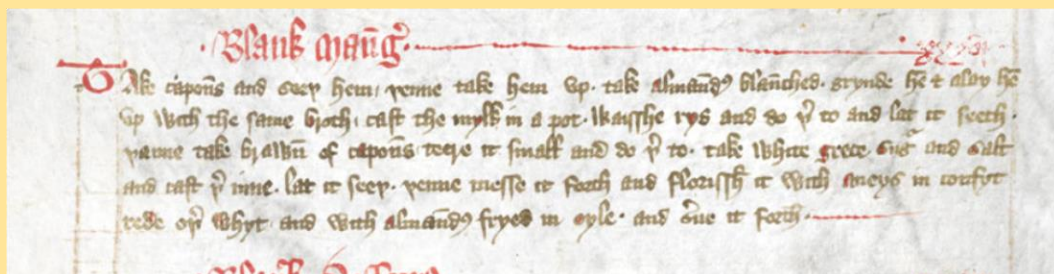 Blank Maūg̉. xxxvi.
Take capoūs and seeþ hem, þenne take hem up. take almand̛ blaūched. grynde hē & alay hē
up with the same broth. cast the mylk in a pot. waisshe rys and do þ̉ to and lat it seeth.
þanne take brawn̄ of capoūs teere it small and do þ̉ to. take white grece sug̉ and salt
and cast þ̉ inne. lat it seeþ. þenne messe it forth and florissh it with aneys in confyt
rede oþ̉ whyt. and with almand̛ fryed in oyle. and s̉ue it forth.